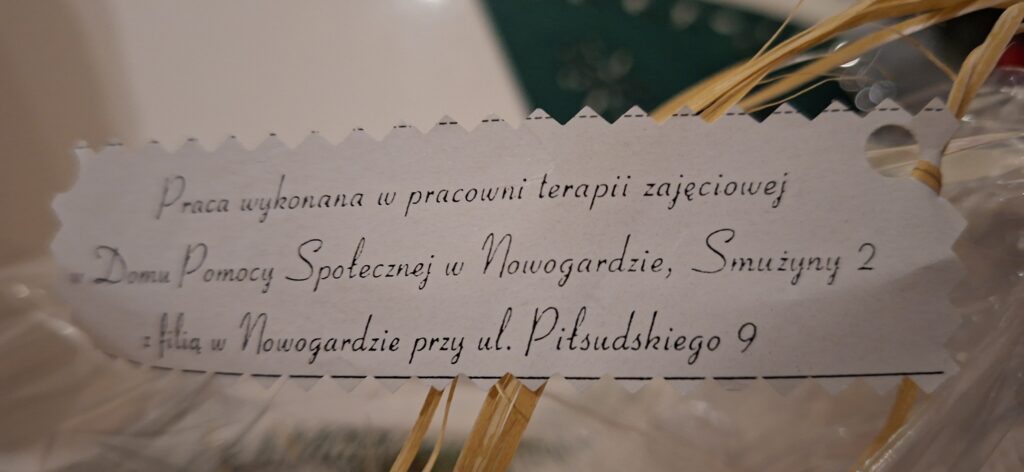 Praca wykonana w pracowni terapii zajęciowej
w Domu Pomocy Społecznej w Nowogardzie, Smużyny 2
z filią w Nowogardzie przy ul. Piłsudskiego 9